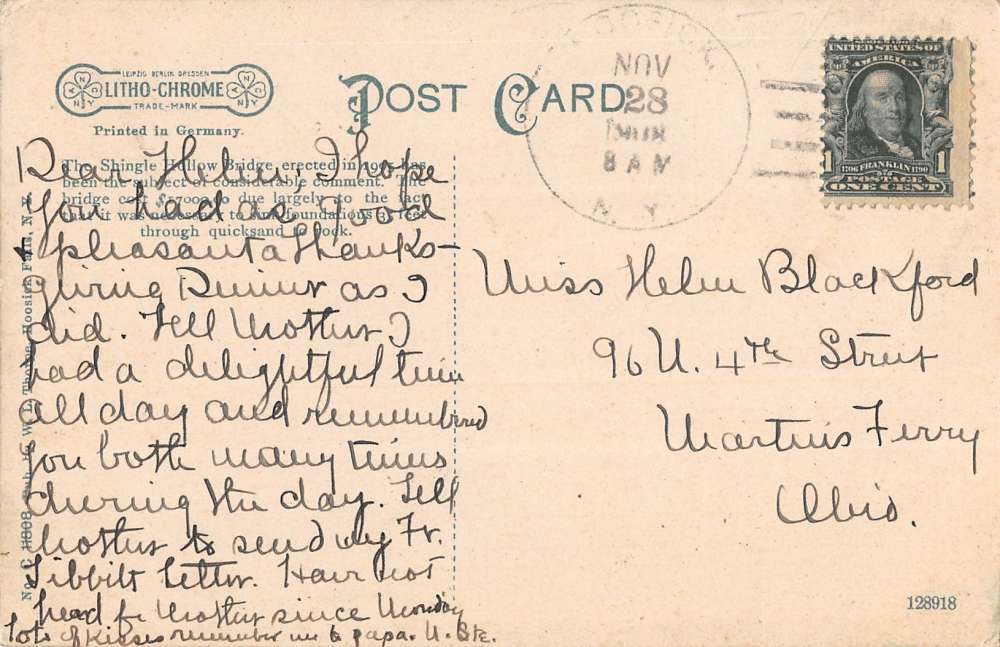 LEIPZIG BERLIN DRESDEN
LITHO-CHROME
TRADE-MARK
Printed in Germany.
POST CARD
HOOSICK
NOV
28
8 AM
N. Y.
UNITED STATES OF
AMERICA
1 1706 FRANKLIN 1790 1
POSTAGE
ONE CENT
The Shingle Hollow Bridge, erected in has
been the subject of considerable comment. The
bridge cost due largely to the fact
it was to foundations feet
through quicksand to rock.
Dear Helen, I hope
you had as good
& pleasant a Thanks-
giving Dinner as I
did. Tell Mother I
had a delightful time
all day and remembered
you both many times
during the day. Tell
Mother to send my Fr.
Tibbits letter. Have not
heard fr Mother since Monday
lots of kisses remember me to papa.
Miss Helen Blackford
96 N. 4th Street
Martins Ferry
Ohio.
Hoosick Falls, N. Y.
128918